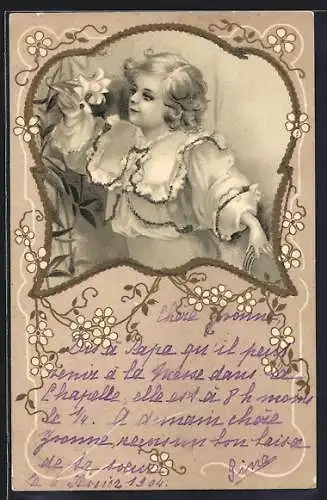 Chère Yvonne,
Dis à Papa qu'il peut
venir à la messe dans la
Chapelle, elle est à 8 h moins
le ¼. A demain chère
Yvonne reçois un bon baiser
de ta soeur
le 6 Février 1904.